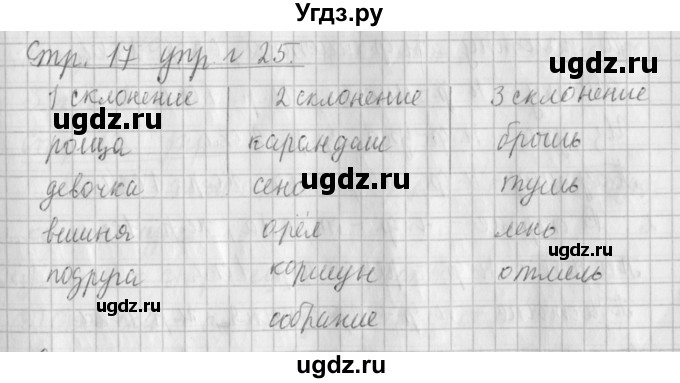 Угдз.ру
Стр. 17 упр № 25.
1 склонение 2 склонение 3 склонение
ugdz.ru ugdz.ru
роща карандаш брошь
ugdz.ru
девочка сено тушь
вишня орёл лень
ugdz.ru
подруга коршун отмель
ugdz.ru
собрание
ugdz.ru